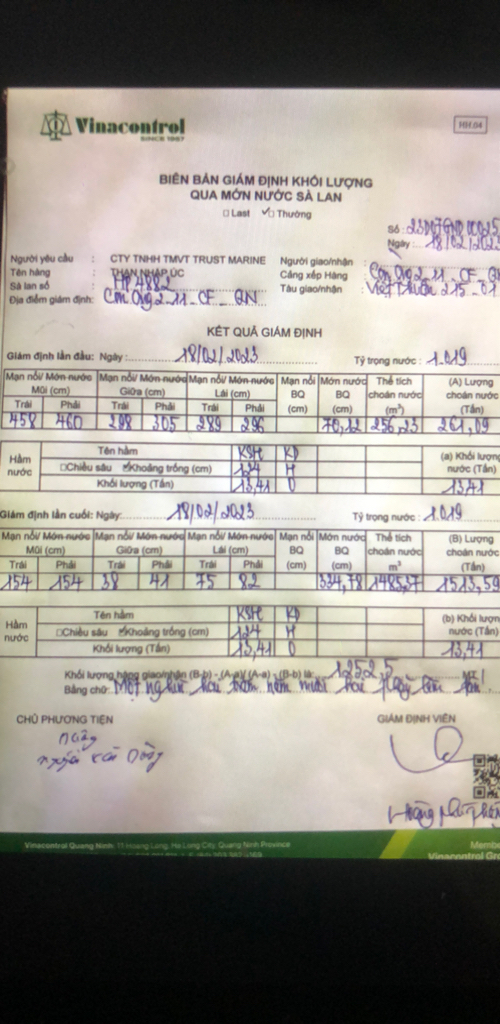 Vinacontrol
SINCE 1957
HH.04
BIÊN BẢN GIÁM ĐỊNH KHỐI LƯỢNG
QUA MỚN NƯỚC SÀ LAN
Last Thường
Số :
Ngày : 18/02/202
Người yêu cầu : CTY TNHH TMVT TRUST MARINE Người giao/nhận :
Tên hàng : THAN NHẬP ÚC Cảng xếp Hàng : Con Ong 2_11_CF_QN
Sà lan số : HP 4882 Tàu giao/nhận : Việt Thuận 215-01
Địa điểm giám định: Con Ong 2_11_CF_QN
KẾT QUẢ GIÁM ĐỊNH
Giám định lần đầu: Ngày: 18/02/2023 Tỷ trọng nước : 1.019
Mạn nổi/ Mớn nước Mũi (cm) Mạn nổi/ Mớn nước Giữa (cm) Mạn nổi/ Mớn nước Lái (cm) Mạn nổi BQ (cm) Mớn nước BQ (cm) Thể tích choán nước (m³) (A) Lượng choán nước (Tấn)
Trái Phải Trái Phải Trái Phải
458 460 298 305 289 296 70,12 256,23 261,09
Hầm nước Tên hầm KSH KĐ (a) Khối lượng nước (Tấn)
Chiều sâu Khoảng trống (cm) 124 H
Khối lượng (Tấn) 13,41 0 13,41
Giám định lần cuối: Ngày: 18/02/2023 Tỷ trọng nước : 1.019
Mạn nổi/ Mớn nước Mũi (cm) Mạn nổi/ Mớn nước Giữa (cm) Mạn nổi/ Mớn nước Lái (cm) Mạn nổi BQ (cm) Mớn nước BQ (cm) Thể tích choán nước m³ (B) Lượng choán nước (Tấn)
Trái Phải Trái Phải Trái Phải
154 154 38 41 75 82 334,78 1485,37 1513,59
Hầm nước Tên hầm KSH KĐ (b) Khối lượng nước (Tấn)
Chiều sâu Khoảng trống (cm) 124 H
Khối lượng (Tấn) 13,41 0 13,41
Khối lượng hàng giao/nhận (B-b) - (A-a)/ (A-a) - (B-b) là: 1252,5 MT!
Bằng chữ: Một nghìn hai trăm năm mươi hai phẩy năm tấn
CHỦ PHƯƠNG TIỆN GIÁM ĐỊNH VIÊN
Vinacontrol Quang Ninh: 11 Hoang Long, Ha Long City, Quang Ninh Province
Membe
Vinacontrol Gr